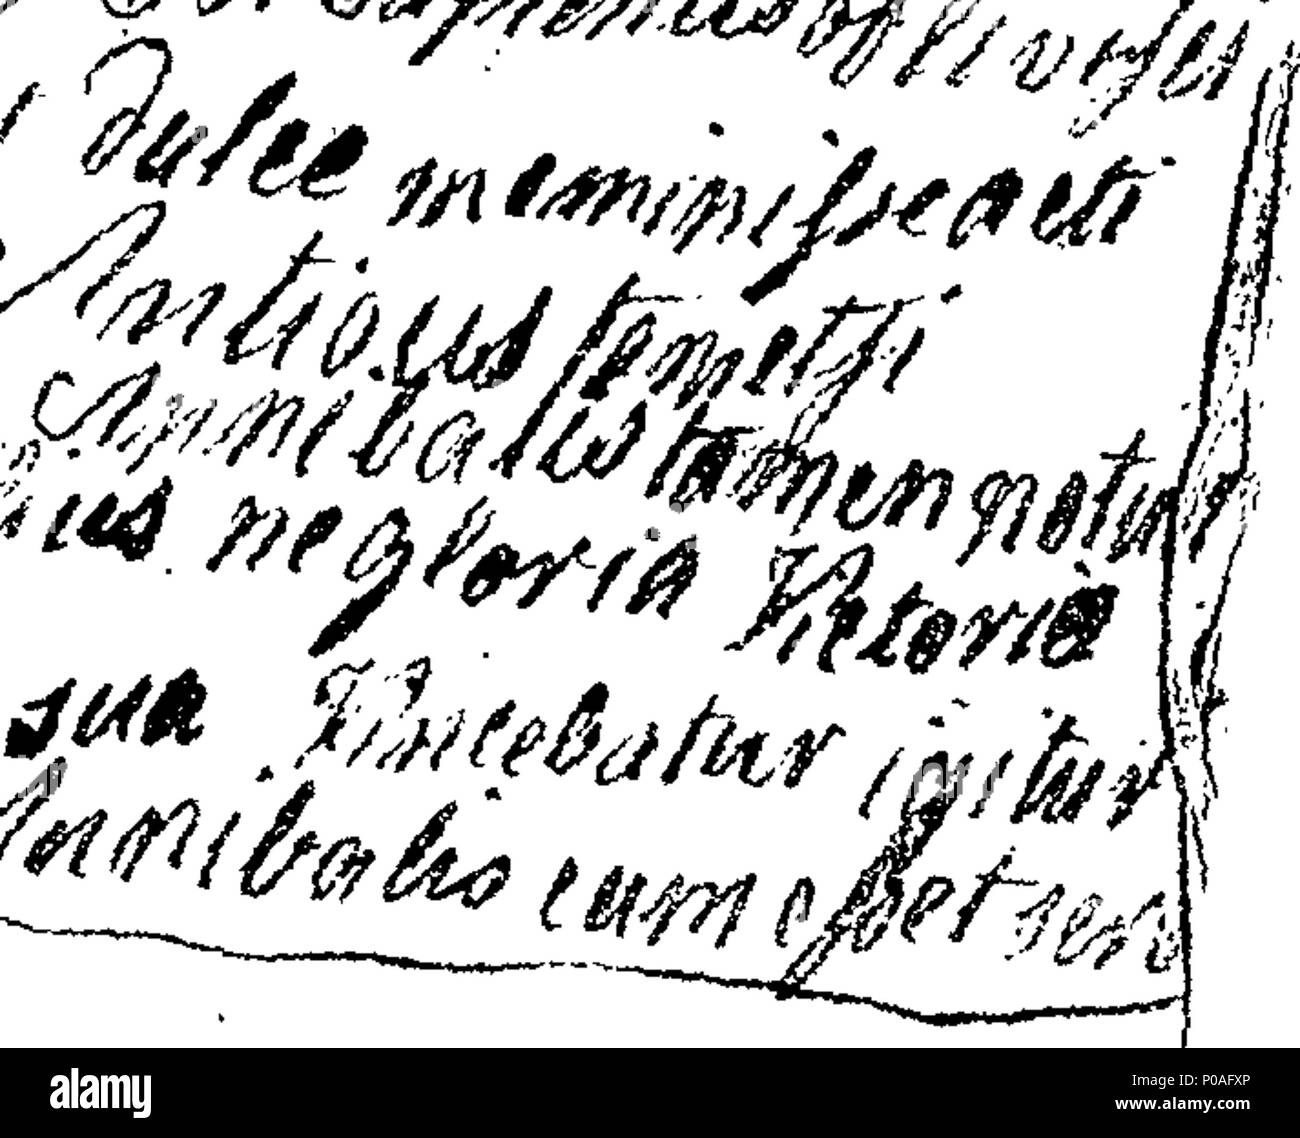 Dulce meminisse acti
Antiocus temetsi
Annibalis tamen notur
ius ne gloria Victoria
sua Vincebatur igitur
Annibalis cum esset sen
alamy
Image ID: P0AFXP
www.alamy.com